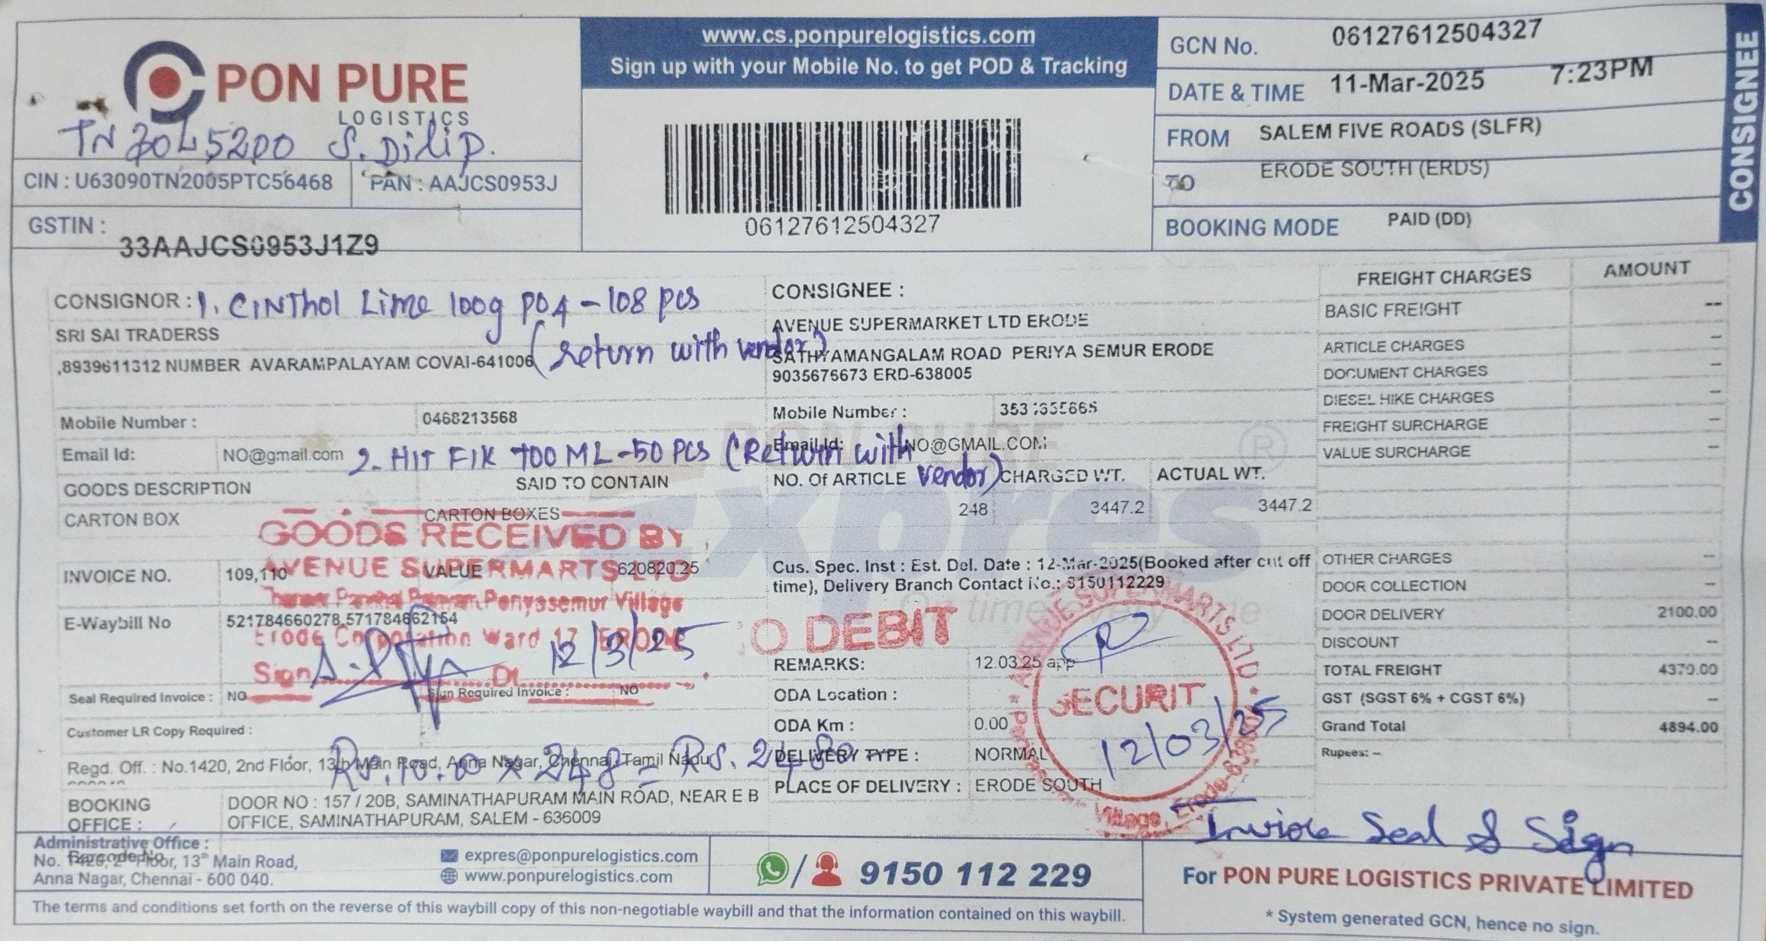 PON PURE
LOGISTICS
TN 30L5200 S. Dilip.
CIN : U63090TN2005PTC56468
PAN : AAJCS0953J
GSTIN :
33AAJCS0953J1Z9
www.cs.ponpurelogistics.com
Sign up with your Mobile No. to get POD & Tracking
06127612504327
GCN No. 06127612504327
DATE & TIME 11-Mar-2025 7:23PM
FROM SALEM FIVE ROADS (SLFR)
TO ERODE SOUTH (ERDS)
BOOKING MODE PAID (DD)
CONSIGNEE
CONSIGNOR : 1. CINThol Lime 100g PO4 - 108 pcs
(return with vendor)
SRI SAI TRADERSS
,8939611312 NUMBER AVARAMPALAYAM COVAI-641006
CONSIGNEE :
AVENUE SUPERMARKET LTD ERODE
SATHYAMANGALAM ROAD PERIYA SEMUR ERODE
9035676673 ERD-638005
Mobile Number : 0468213568
Mobile Number :
Email Id: NO@gmail.com
2. HIT FIK 700 ML - 50 PCS (Return with vendor)
Email Id: NO@GMAIL.COM
GOODS DESCRIPTION SAID TO CONTAIN
NO. Of ARTICLE CHARGED WT. ACTUAL WT.
CARTON BOX CARTON BOXES 248 3447.2 3447.2
INVOICE NO. 109,110 VALUE 620820.25
Cus. Spec. Inst : Est. Del. Date : 12-Mar-2025(Booked after cut off
time), Delivery Branch Contact No.: 9150112229
E-Waybill No 521784660278,571784662154
GOODS RECEIVED BY
AVENUE SUPERMARTS LTD
Periyasemur Village
Erode Corporation Ward 17, ERODE
Sign Dt 12/3/25
NO DEBIT
Seal Required Invoice : NO Sign Required Invoice : NO
Customer LR Copy Required :
Rs. 10.00 × 248 = Rs. 2480
REMARKS: 12.03.25 app
ODA Location :
ODA Km : 0.00
DELIVERY TYPE : NORMAL
PLACE OF DELIVERY : ERODE SOUTH
AVENUE SUPERMARTS LTD
SECURITY
12/03/25
Village, Erode
Regd. Off. : No.1420, 2nd Floor, 13th Main Road, Anna Nagar, Chennai, Tamil Nadu
BOOKING OFFICE : DOOR NO : 157 / 20B, SAMINATHAPURAM MAIN ROAD, NEAR E B
OFFICE, SAMINATHAPURAM, SALEM - 636009
FREIGHT CHARGES AMOUNT
BASIC FREIGHT --
ARTICLE CHARGES –
DOCUMENT CHARGES –
DIESEL HIKE CHARGES –
FREIGHT SURCHARGE –
VALUE SURCHARGE –
OTHER CHARGES –
DOOR COLLECTION –
DOOR DELIVERY 2100.00
DISCOUNT –
TOTAL FREIGHT 4370.00
GST (SGST 6% + CGST 6%) –
Grand Total 4894.00
Rupees: –
Invoice Seal & Sign
Administrative Office :
No. 1420, 2nd Floor, 13th Main Road,
Anna Nagar, Chennai - 600 040.
expres@ponpurelogistics.com
www.ponpurelogistics.com
/ 9150 112 229
For PON PURE LOGISTICS PRIVATE LIMITED
The terms and conditions set forth on the reverse of this waybill copy of this non-negotiable waybill and that the information contained on this waybill.
* System generated GCN, hence no sign.
PON PURE
Expres ®
On time